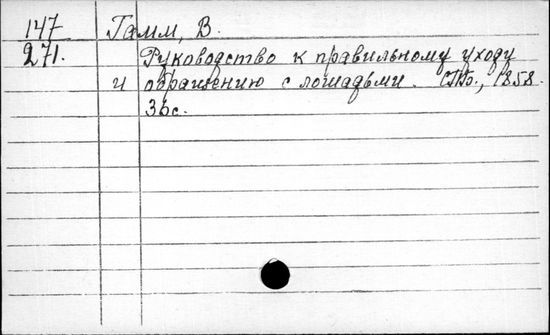 147 Гамм, В.
271. Руководство к правильному уходу
и обращению с лошадьми. СПб., 1858.
36с.